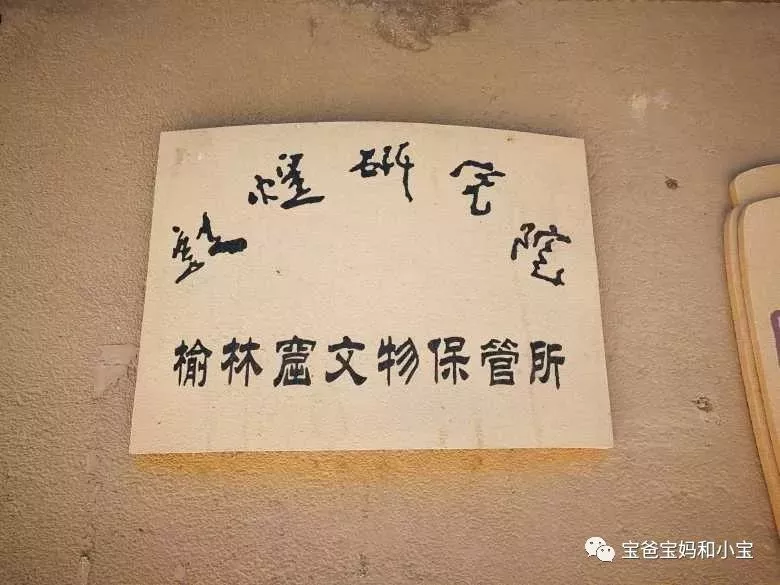 敦煌研究院
榆林窟文物保管所
宝爸宝妈和小宝